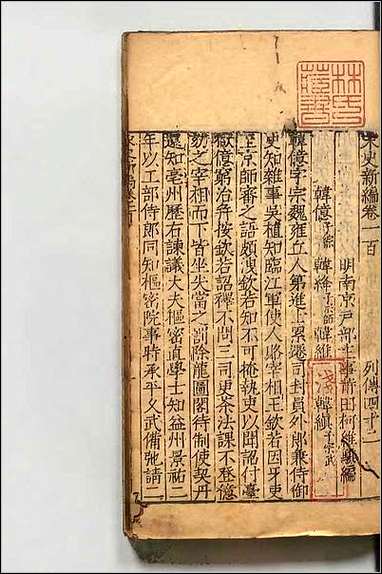 宋史新編卷一百
列傳四十二
明南京戶部主事莆田柯維騏編
韓億子綜 韓絳子宗師 韓維 韓縝子宗武
韓億字宗魏雍丘人第進士累遷司封員外郎兼侍御
史知雜事吳植知臨江軍使人賂宰相王欽若因牙吏
至京師審之語頗洩欽若知不可掩執吏以聞詔付臺
獄億窮治并按欽若詔釋不問三司更茶法課不登億
劾之宰相而下皆坐失當之罰除龍圖閣待制使契丹
還知亳州歷右諫議大夫樞密直學士知益州景祐二
年以工部侍郎同知樞密院事時承平久武備弛請二
林氏藏書